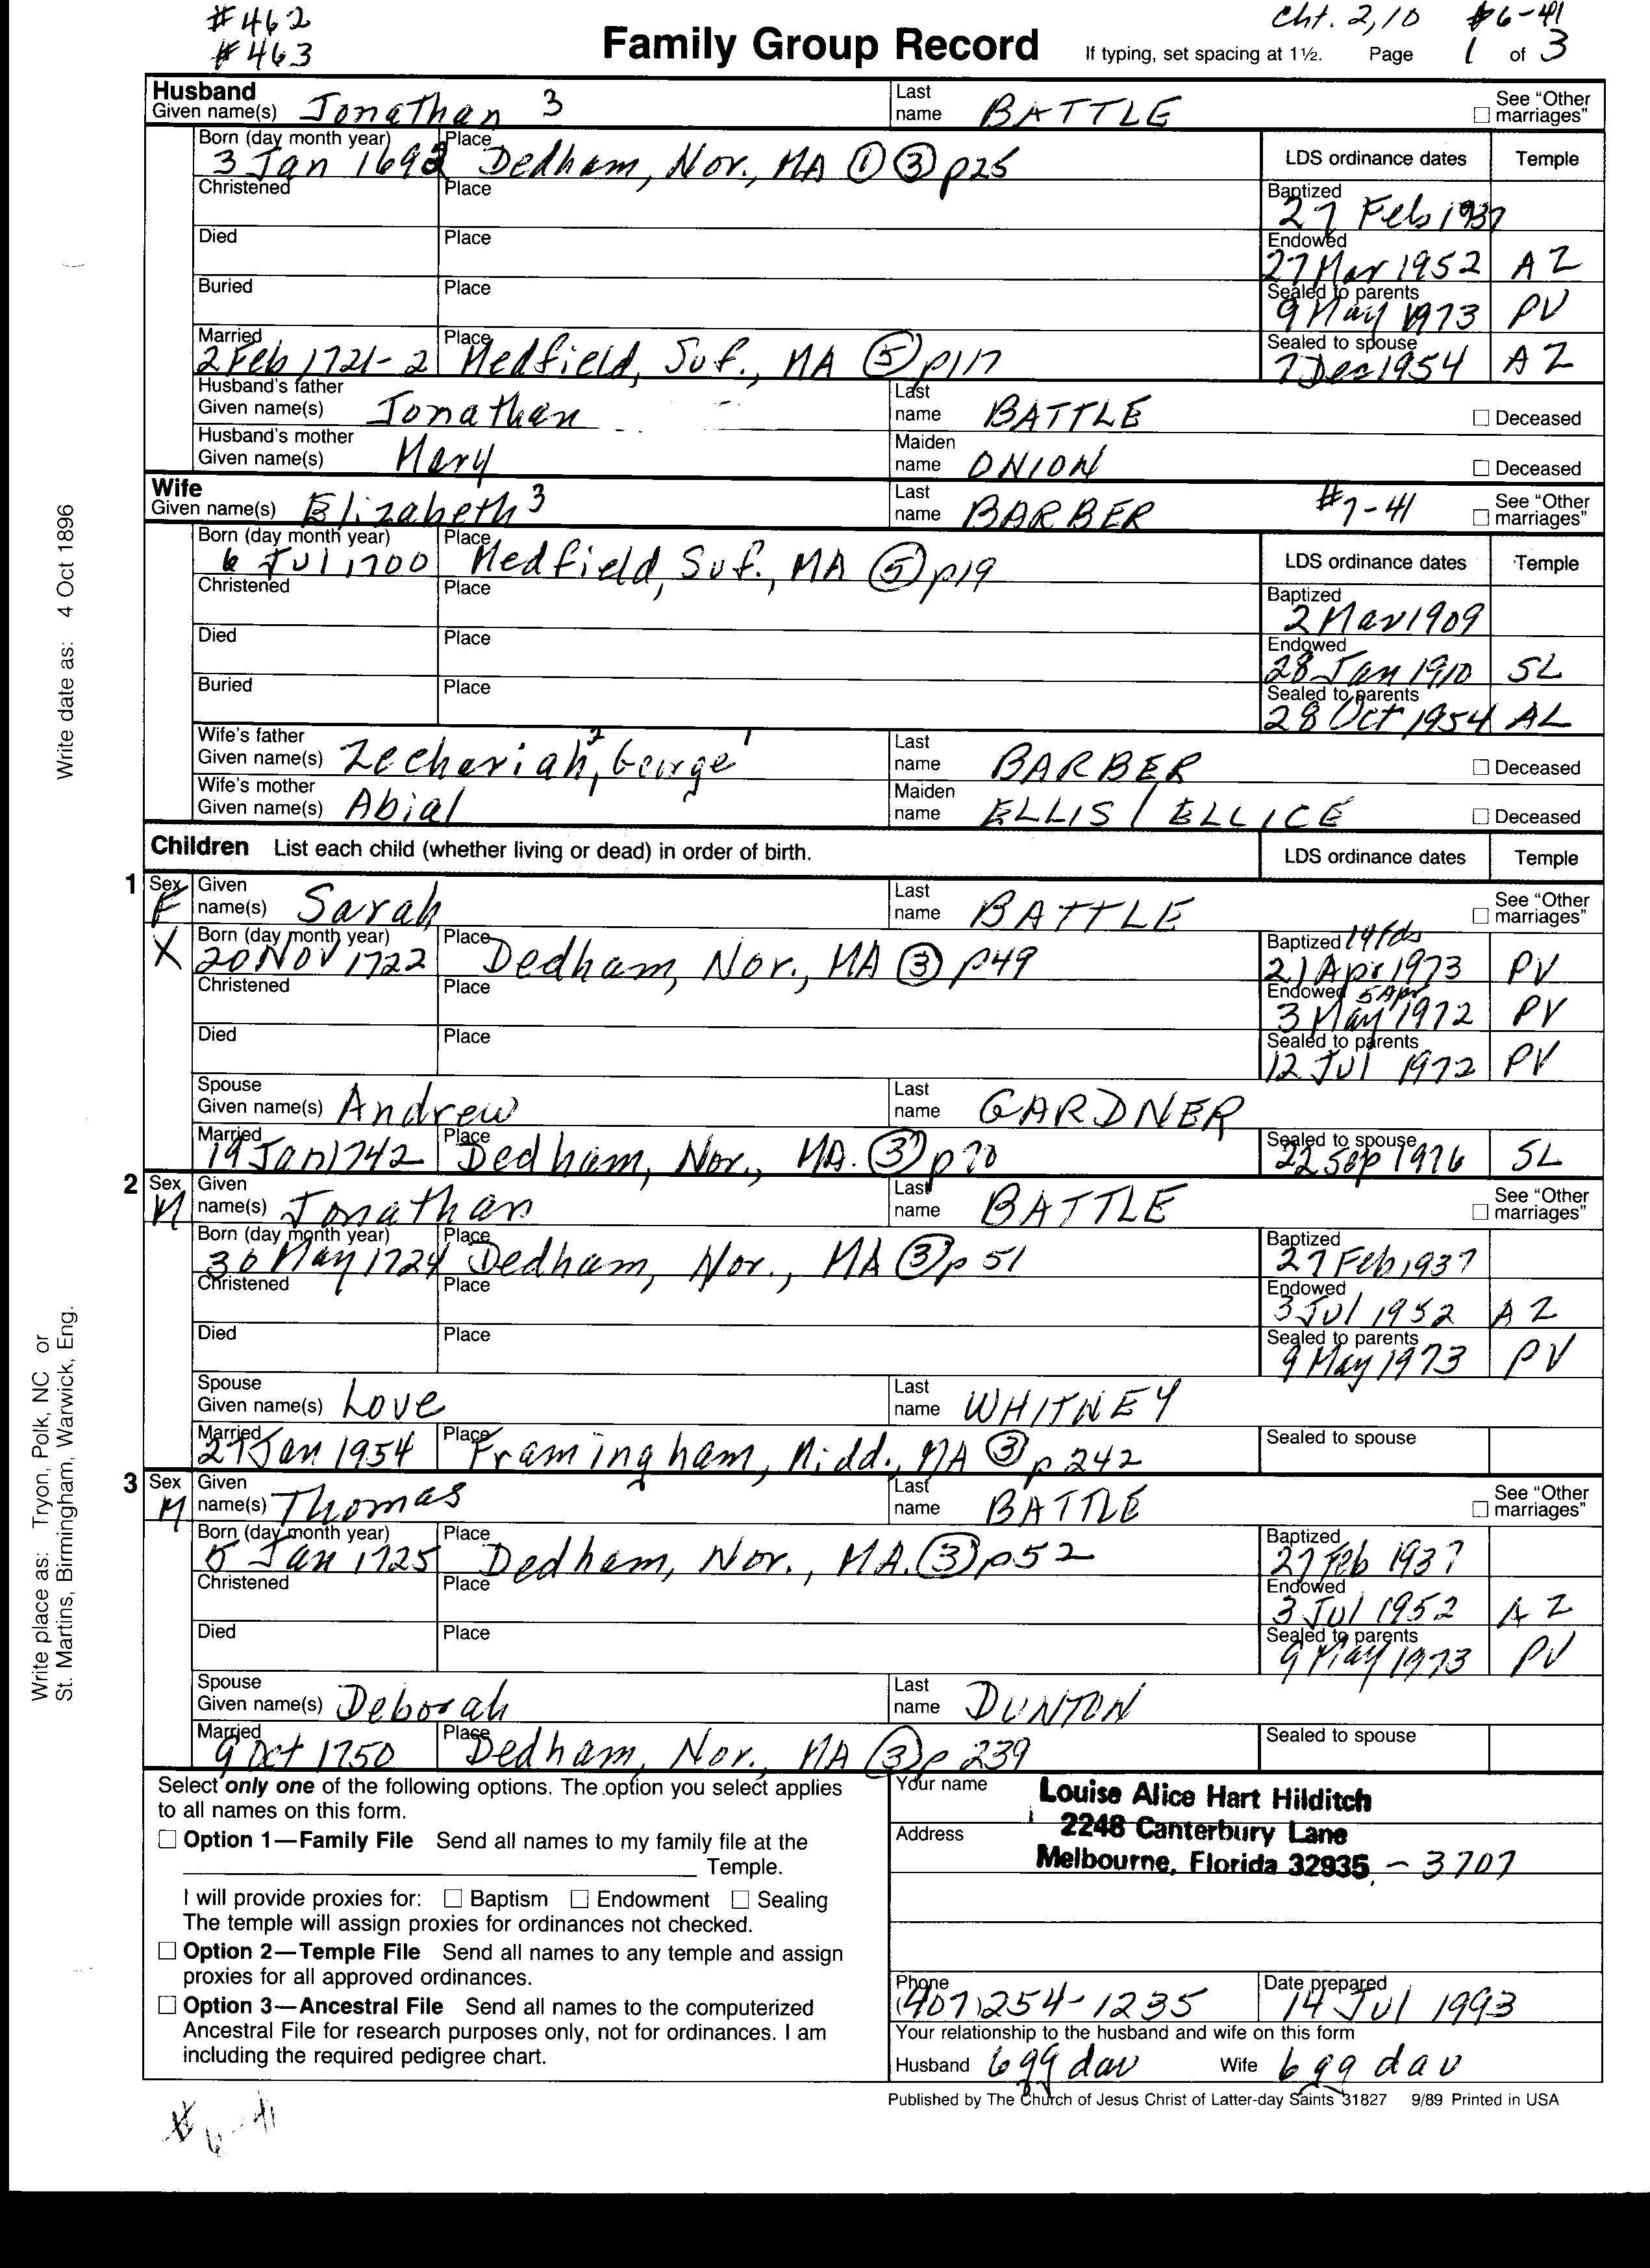 #462 cht. 2,10 #6-41
#463 Family Group Record If typing, set spacing at 1½. Page 1 of 3
Husband
Given name(s) Jonathan 3 Last name BATTLE ☐ See "Other marriages"
Born (day month year) 3 Jan 1692 Place Dedham, Nor., MA ① ③ p25 LDS ordinance dates Temple
Christened Place Baptized 27 Feb 1937
Died Place Endowed 27 Mar 1952 AZ
Buried Place Sealed to parents 9 May 1973 PV
Married 2 Feb 1721-2 Place Medfield, Suf., MA ⑤ p117 Sealed to spouse 7 Dec 1954 AZ
Husband's father Given name(s) Jonathan Last name BATTLE ☐ Deceased
Husband's mother Given name(s) Mary Maiden name ONION ☐ Deceased
Wife
Given name(s) Elizabeth 3 Last name BARBER #7-41 ☐ See "Other marriages"
Born (day month year) 6 Jul 1700 Place Medfield, Suf., MA ⑤ p19 LDS ordinance dates Temple
Christened Place Baptized 2 Mar 1909
Died Place Endowed 28 Jan 1910 SL
Buried Place Sealed to parents 28 Oct 1954 AL
Wife's father Given name(s) Zechariah,2 George 1 Last name BARBER ☐ Deceased
Wife's mother Given name(s) Abial Maiden name ELLIS / ELLICE ☐ Deceased
Children List each child (whether living or dead) in order of birth. LDS ordinance dates Temple
1 Sex F Given name(s) Sarah Last name BATTLE ☐ See "Other marriages"
X Born (day month year) 20 NOV 1722 Place Dedham, Nor., MA ③ p49 Baptized 21 Apr 1973 PV
Christened Place Endowed 5 Apr 3 May 1972 PV
Died Place Sealed to parents 12 Jul 1972 PV
Spouse Given name(s) Andrew Last name GARDNER
Married 19 Jan 1742 Place Dedham, Nor., MA. ③ p70 Sealed to spouse 22 Sep 1976 SL
2 Sex M Given name(s) Jonathan Last name BATTLE ☐ See "Other marriages"
Born (day month year) 30 May 1724 Place Dedham, Nor., MA ③ p 51 Baptized 27 Feb 1937
Christened Place Endowed 3 Jul 1952 AZ
Died Place Sealed to parents 9 May 1973 PV
Spouse Given name(s) Love Last name WHITNEY
Married 27 Jan 1954 Place Framingham, Midd., MA ③ p 242 Sealed to spouse
3 Sex M Given name(s) Thomas Last name BATTLE ☐ See "Other marriages"
Born (day month year) 5 Jan 1725 Place Dedham, Nor., MA. ③ p52 Baptized 27 Feb 1937
Christened Place Endowed 3 Jul 1952 AZ
Died Place Sealed to parents 9 May 1973 PV
Spouse Given name(s) Deborah Last name DUNTON
Married 9 Oct 1750 Place Dedham, Nor., MA ③ p 239 Sealed to spouse
Select only one of the following options. The option you select applies
to all names on this form.
☐ Option 1—Family File Send all names to my family file at the
Temple.
I will provide proxies for: ☐ Baptism ☐ Endowment ☐ Sealing
The temple will assign proxies for ordinances not checked.
☐ Option 2—Temple File Send all names to any temple and assign
proxies for all approved ordinances.
☐ Option 3—Ancestral File Send all names to the computerized
Ancestral File for research purposes only, not for ordinances. I am
including the required pedigree chart.
Your name Louise Alice Hart Hilditch
Address 2248 Canterbury Lane
Melbourne, Florida 32935 - 3707
Phone (407) 254-1235 Date prepared 14 Jul 1993
Your relationship to the husband and wife on this form
Husband 6 gg dau Wife 6 gg dau
Published by The Church of Jesus Christ of Latter-day Saints 31827 9/89 Printed in USA
#6-41
Write date as: 4 Oct 1896
Write place as: Tryon, Polk, NC or
St. Martins, Birmingham, Warwick, Eng.